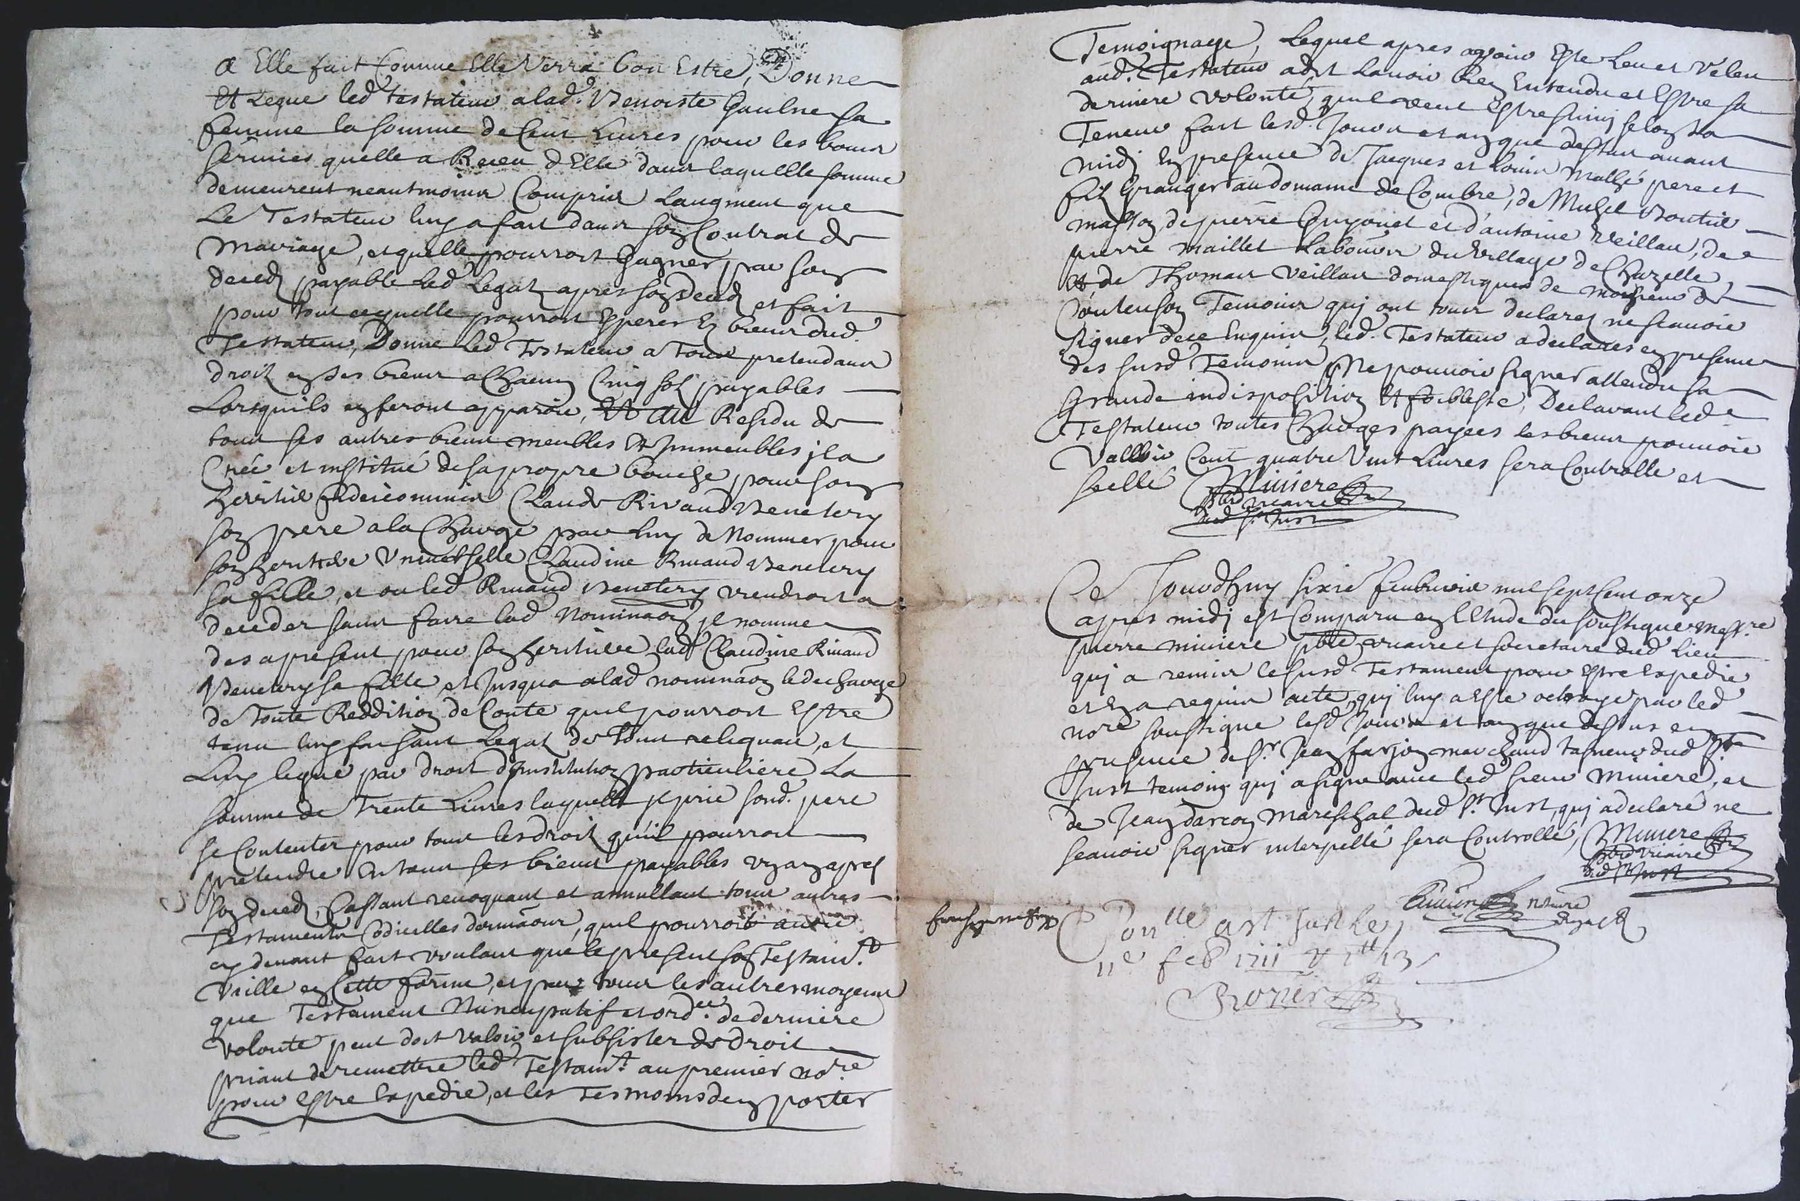 a Elle fait Comme Elle Verra bon Estre, Donne
et Legue led. testateur a lad. Benoiste Gaulne sa
femme la somme de Cent Livres pour les bons
services quelle a Receu d'Elle dans laquelle somme
demeurent neantmoins Compris Laugment que
Le Testateur luy a fait dans son Contrat de
Mariage, et quelle pourroit Gagner par son
deced payable led. Legat apres son deced et fait
pour tout ce quelle pourroit Esperer En biens dud.
Testateur, Donne led. Testateur a Tous pretendans
droit en ses biens a Chacun Cinq sol payables
Lorsquils en feront apparoir, Et du Residu de
tous ses autres biens meubles et Immeubles jl a
Créé et institué de sa propre bouche pour son
heritier fideicommis Claude Rivaud Venetery
son pere a la Charge par luy de Nommer pour
son heritiere Universelle Claudine Rivaud Venetery
sa fille, et ou led. Rivaud Venetery viendroit a
deceder sans faire lad. Nominaon jl nomme
des apresent pour son heritiere lad. Claudine Rivaud
Venetery sa fille et Jusqua a lad. nominaon le decharge
de Toute Reddition de Conte quil pourroit Estre
tenu luy faisant Legat de tout reliquat, et
Luy legue par droit d'institution particuliere La
somme de Trente Livres laquelle jl prie sond. pere
se Contenter pour tout les droit qu'il pourroit
pretendre En tous ses biens payables un an apres
son deced, Cassant revoquant et annullant tous autres
Testaments Codicilles donnaons, quil pourroit avoir
cy devant fait voulant que le present son Testam.t
Vaille en Cette forme, et par tous les autres moyens
que Testament Nuncupatif et ord.ce de derniere
volonte peut doit valoir et subsister de droit
priant de remettre led. Testam.t au premier no.re
pour Estre Expedié, et les Tesmoins den porter
Temoignage, Lequel apres avoir Este Leu et releu
aud. Testateur a dit Lavoir bien Entendu et Estre sa
derniere volonté, quil veut Estre suivy selon sa
Teneur fait lesd. Jour et an que dessus avant
midi En presence de Jacques et Louis Mathé pere et
fil Granger au domaine de Combre, de Michel
masson de pierre Guyonet et d'antoine Veillau, de
pierre maillet Laboureur du Village de Chazelle
et de Thomas Veillau domestique de Monsieur de
Temoins quj ont tous declarez ne scavoir
Signer de ce Enquis, led. Testateur a declaré en presence
des susd. Temoins Ne pouvoir signer attendu sa
Grande indisposition Et foiblesse, Declarant led.
Testateur toutes Charges payees les biens pouvoir
Valloir Cent quatre Vint Livres sera Controllé et
scellé Miniere
pbre vicaire
dud. St Just
Ce Jourdhuy sixie febvrier mil sept cent onze
apres midj est Comparu en L'Etude du soustigné Mess.re
pierre miniere pbre vicaire et secretaire dud. Lieu
quj a remis le susd. Testament pour estre Expedié
et en a requis acte, quj luy a Esté octroyé par led.
no.re soustigné lesd. Jour et an que dessus en
presence de S.r Jean farjon marchand taneur dud. St
Just temoin quj a signe avec led. sieur Miniere, et
de Jean darcon Mareschal dud. St. Just, quj a declaré ne
scavoir signer interpellé sera Controllé, Miniere
pbre vicaire
dud. St Just
notaire
Con.lle a St Just le
11e feb 1711